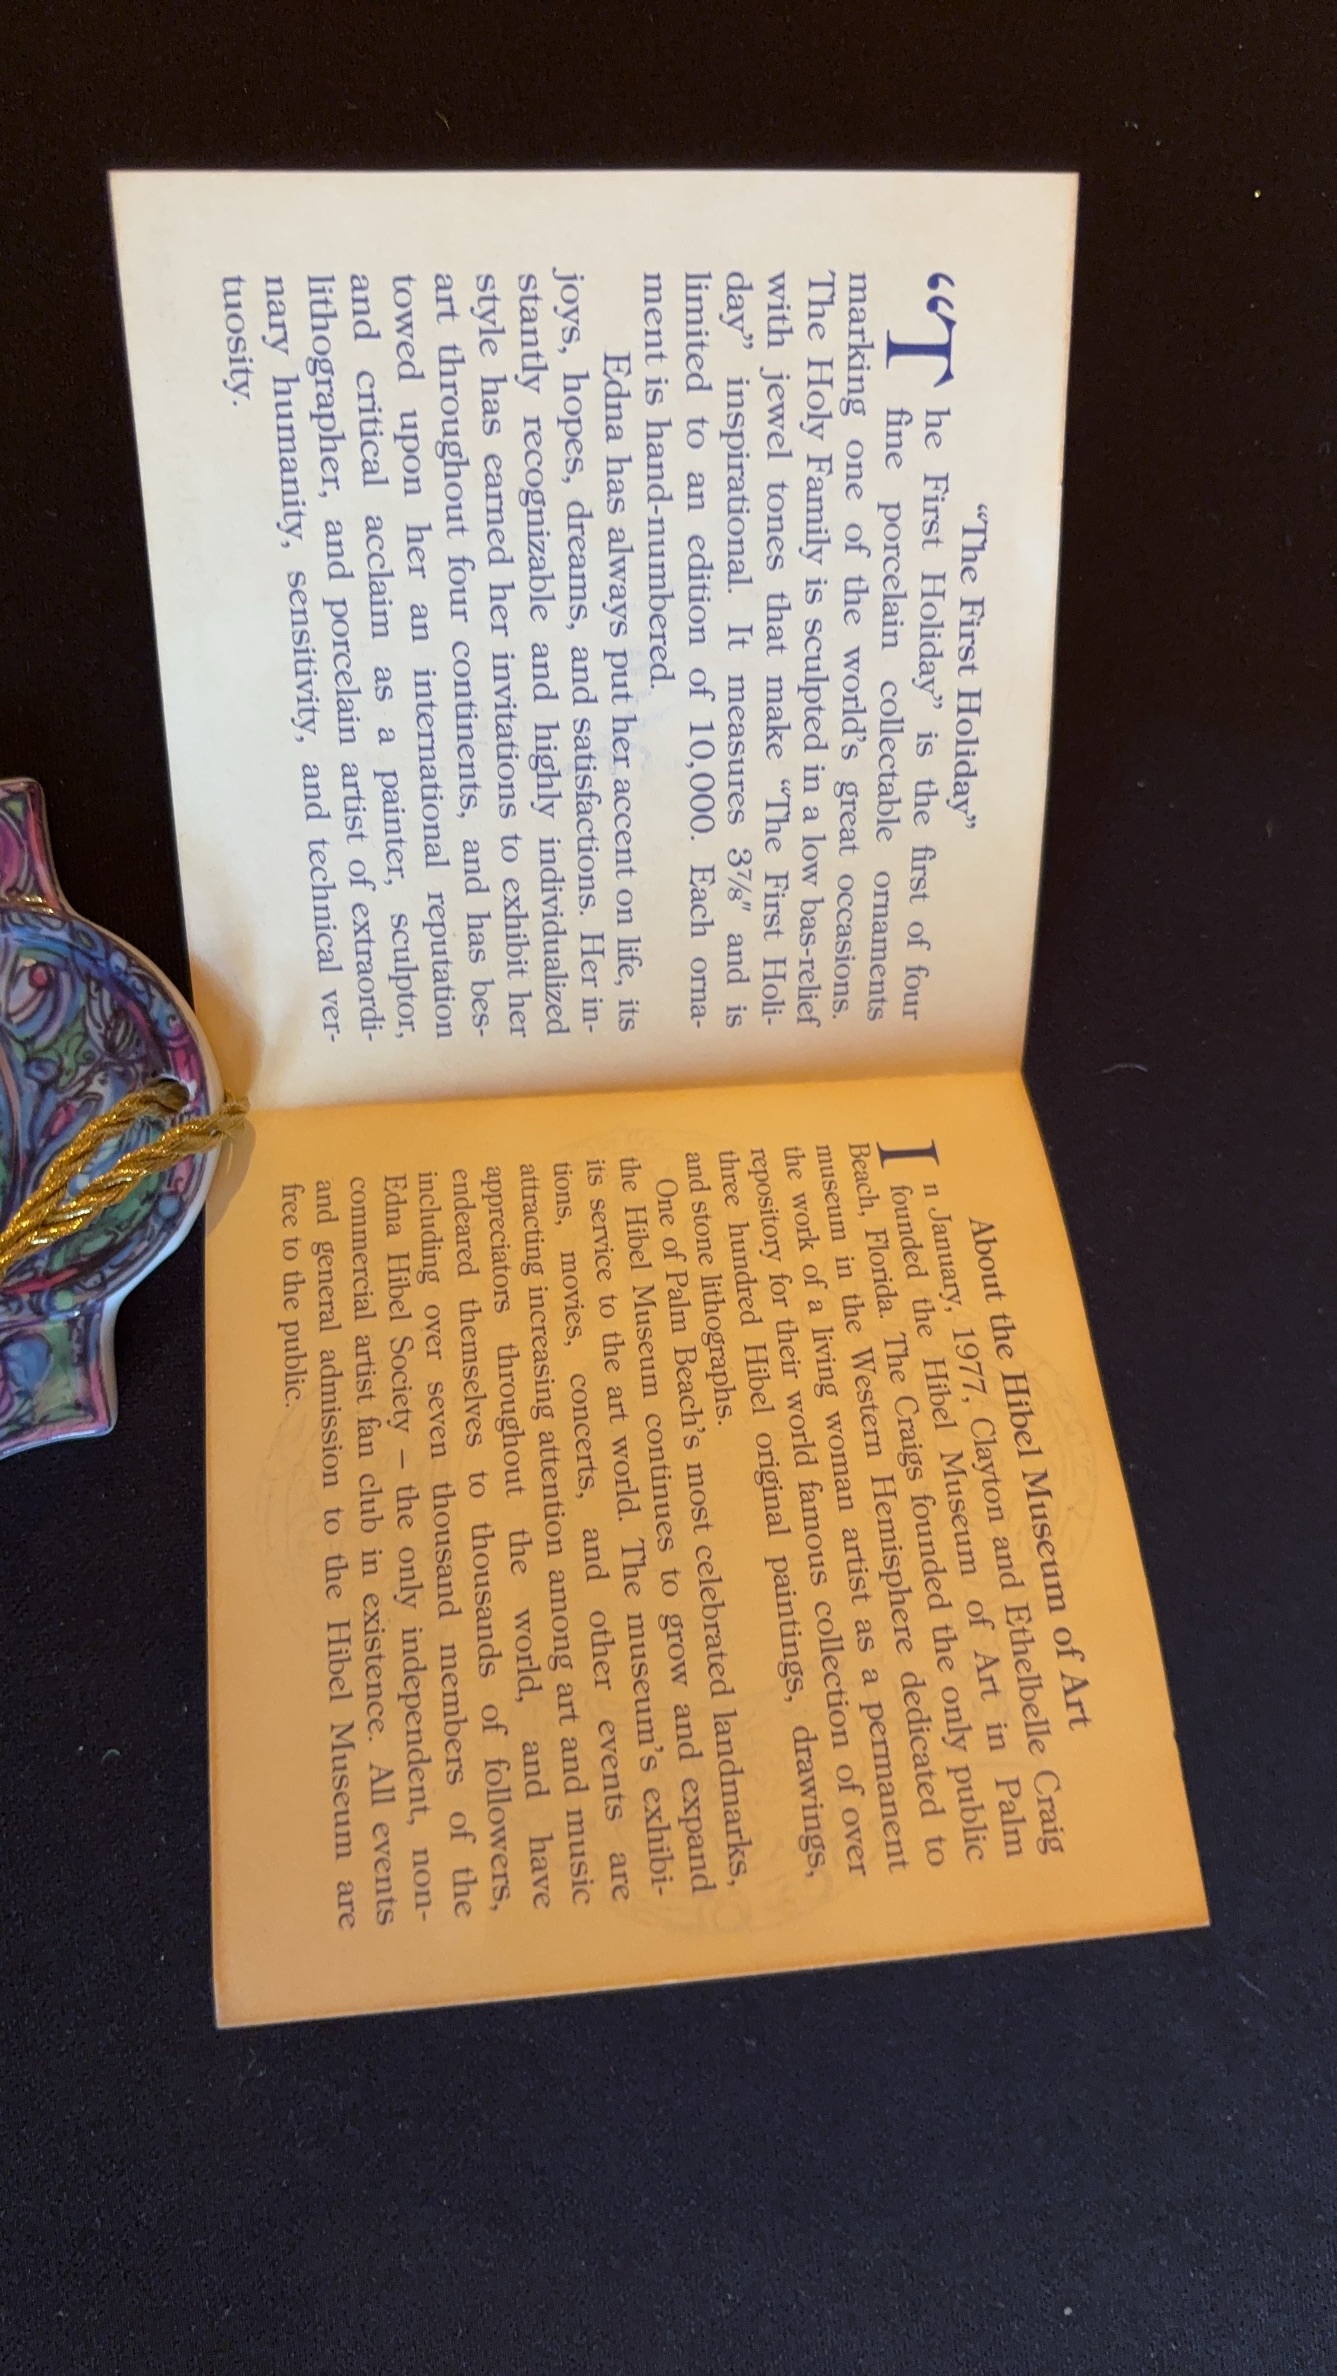 “The First Holiday”
“The First Holiday” is the first of four
fine porcelain collectable ornaments
marking one of the world's great occasions.
The Holy Family is sculpted in a low bas-relief
with jewel tones that make “The First Holi-
day” inspirational. It measures 3⅞" and is
limited to an edition of 10,000. Each orna-
ment is hand-numbered.
Edna has always put her accent on life, its
joys, hopes, dreams, and satisfactions. Her in-
stantly recognizable and highly individualized
style has earned her invitations to exhibit her
art throughout four continents, and has bes-
towed upon her an international reputation
and critical acclaim as a painter, sculptor,
lithographer, and porcelain artist of extraordi-
nary humanity, sensitivity, and technical ver-
tuosity.
About the Hibel Museum of Art
In January, 1977, Clayton and Ethelbelle Craig
founded the Hibel Museum of Art in Palm
Beach, Florida. The Craigs founded the only public
museum in the Western Hemisphere dedicated to
the work of a living woman artist as a permanent
repository for their world famous collection of over
three hundred Hibel original paintings, drawings,
and stone lithographs.
One of Palm Beach's most celebrated landmarks,
the Hibel Museum continues to grow and expand
its service to the art world. The museum's exhibi-
tions, movies, concerts, and other events are
attracting increasing attention among art and music
appreciators throughout the world, and have
endeared themselves to thousands of followers,
including over seven thousand members of the
Edna Hibel Society – the only independent, non-
commercial artist fan club in existence. All events
and general admission to the Hibel Museum are
free to the public.